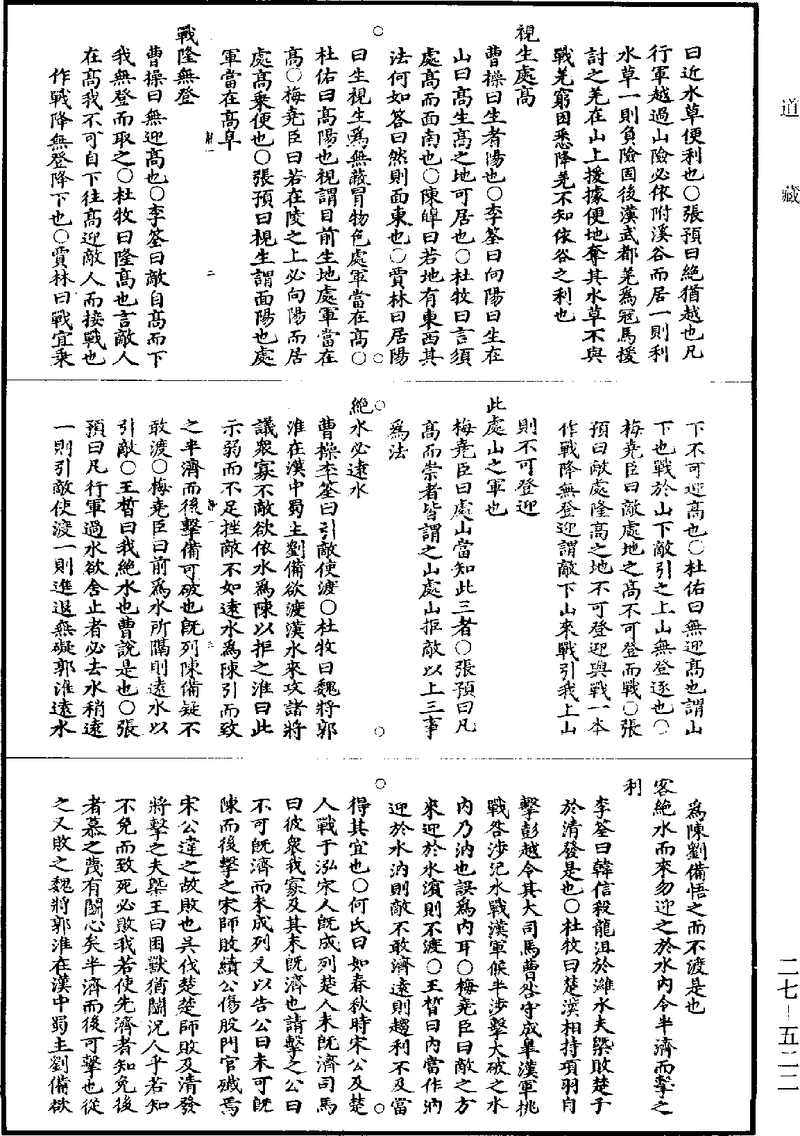 道藏
曰近水草便利也○張預曰絕猶越也凡
行軍越過山險必依附溪谷而居一則利
水草一則負險固後漢武都羌為寇馬援
討之羌在山上援據便地奪其水草不與
戰羌窮困悉降羌不知依谷之利也
視生處高
曹操曰生者陽也○李筌曰向陽曰生在
山曰高生高之地可居也○杜牧曰言須
處高而面南也○陳皥曰若地有東西其
法何如答曰然則面東也○賈林曰居陽
曰生視生為無蔽冒物色處軍當在高○
杜佑曰高陽也視謂目前生地處軍當在
高○梅堯臣曰若在陵之上必向陽而居
處高乘便也○張預曰視生謂面陽也處
軍當在高阜
戰隆無登
曹操曰無迎高也○李筌曰敵自高而下
我無登而取之○杜牧曰隆高也言敵人
在高我不可自下往高迎敵人而接戰也
作戰降無登降下也○賈林曰戰宜乘
下不可迎高也○杜佑曰無迎高也謂山
下也戰於山下敵引之上山無登逐也○
梅堯臣曰敵處地之高不可登而戰○張
預曰敵處隆高之地不可登迎與戰一本
作戰降無登迎謂敵下山來戰引我上山
則不可登迎
此處山之軍也
梅堯臣曰處山當知此三者○張預曰凡
高而崇者皆謂之山處山拒敵以上三事
為法
絕水必遠水
曹操李筌曰引敵使渡○杜牧曰魏將郭
淮在漢中蜀主劉備欲渡漢水來攻諸將
議眾寡不敵欲依水為陳以拒之淮曰此
示弱而不足挫敵不如遠水為陳引而致
之半濟而後擊備可破也既列陳備疑不
敢渡○梅堯臣曰前為水所隔則遠水以
引敵○王晳曰我絕水也曹說是也○張
預曰凡行軍過水欲舍止者必去水稍遠
一則引敵使渡一則進退無礙郭淮遠水
為陳劉備悟之而不渡是也
客絕水而來勿迎之於水內令半濟而擊之
利
李筌曰韓信殺龍沮於濰水夫槩敗楚子
於清發是也○杜牧曰楚漢相持項羽自
擊彭越令其大司馬曹咎守成皐漢軍挑
戰咎涉汜水戰漢軍候半涉擊大破之水
內乃汭也誤為內耳○梅堯臣曰敵之方
來迎於水濱則不渡○王晳曰內當作汭
迎於水汭則敵不敢濟遠則趨利不及當
得其宜也○何氏曰如春秋時宋公及楚
人戰于泓宋人既成列楚人未既濟司馬
曰彼眾我寡及其未既濟也請擊之公曰
不可既濟而未成列又以告公曰未可既
陳而後擊之宋師敗績公傷股門官殲焉
宋公違之故敗也吳伐楚楚師敗及清發
將擊之夫槩王曰困獸猶鬬況人乎若知
不免而致死必敗我若使先濟者知免後
者慕之蔑有鬬心矣半濟而後可擊也從
之又敗之魏將郭淮在漢中蜀主劉備欲
二七—五二二